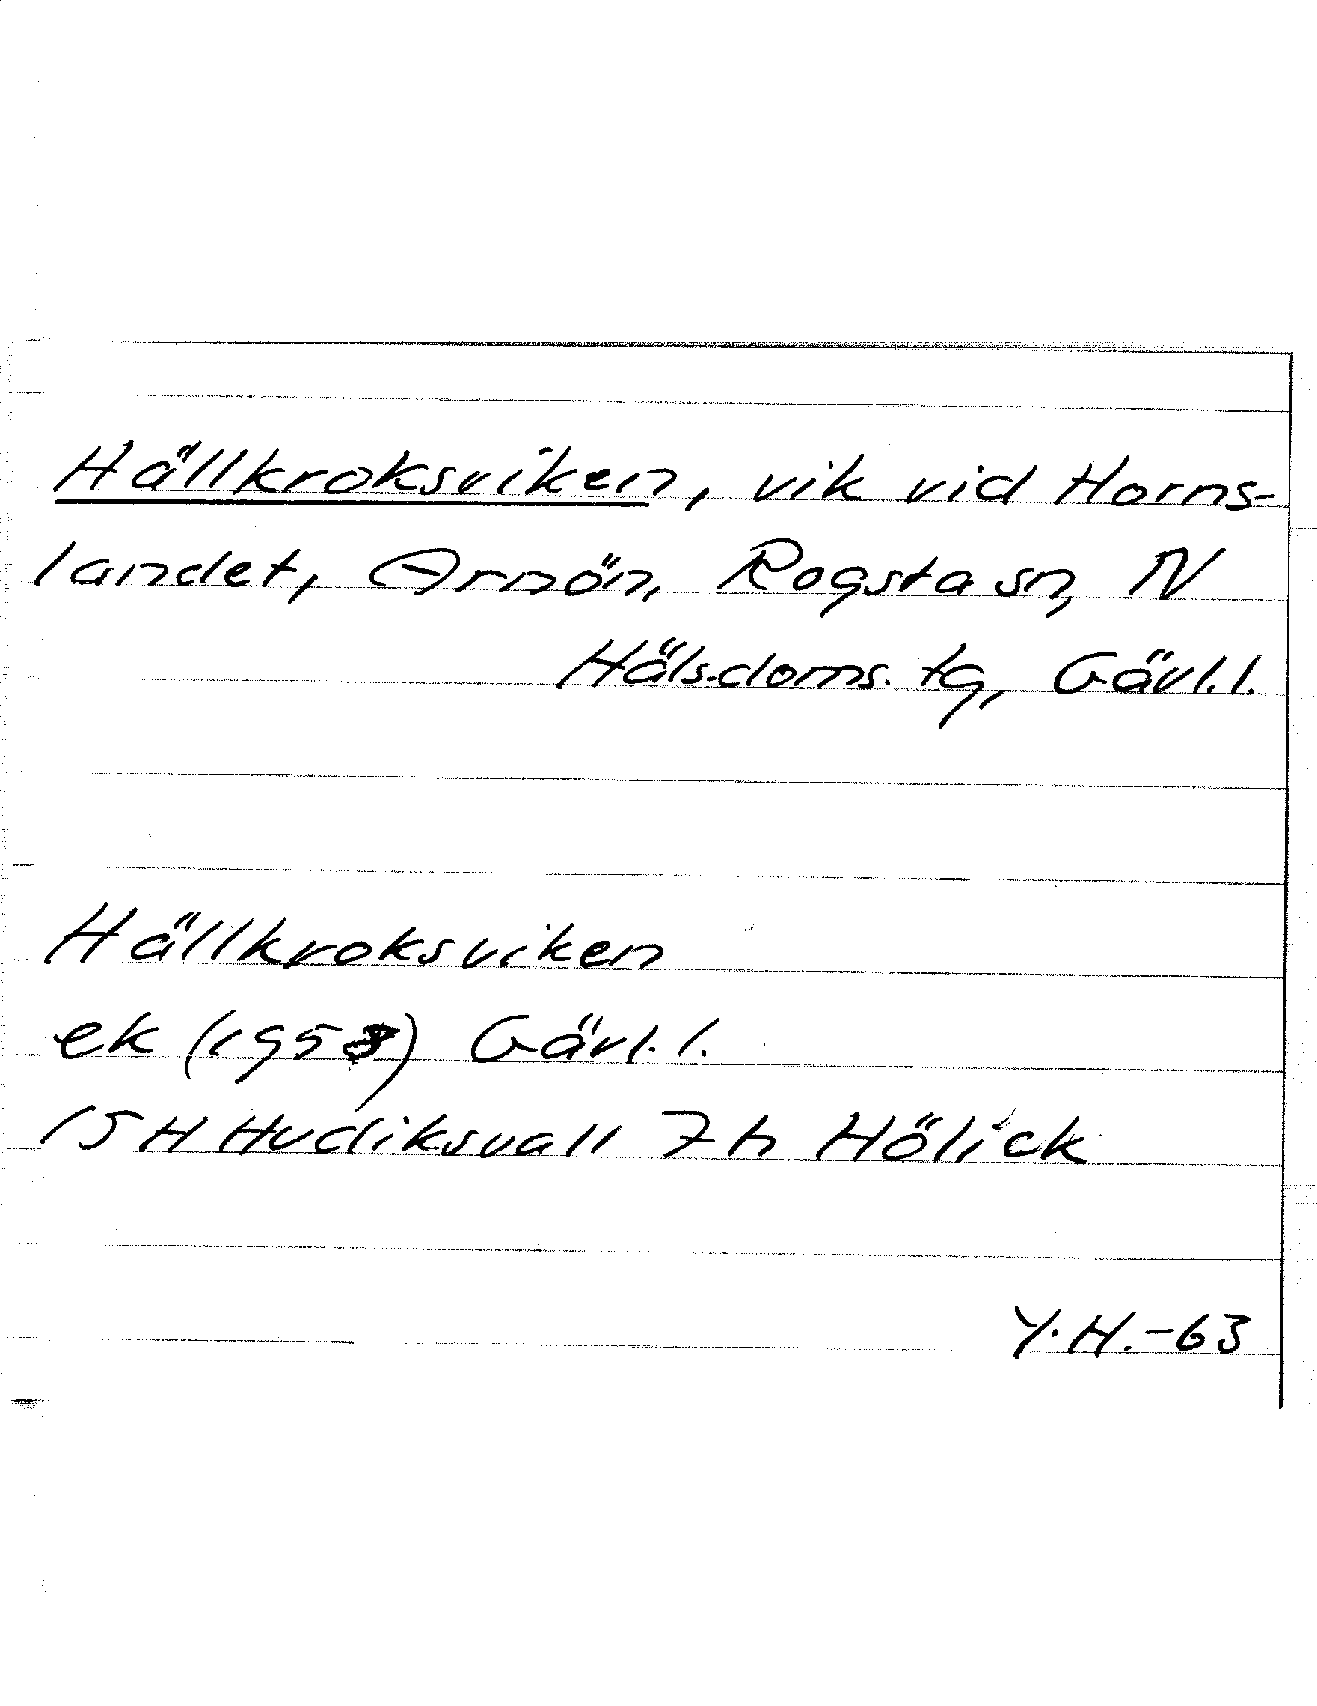 Hällkroksviken, vik vid Horns-
landet, Arnön, Rogsta sn, N
Hälsdoms. tg, Gävl.l.
Hällkroksviken
ek (1958) Gävl.l.
15 H Hudiksvall 7h Hölick
Y.H.-63